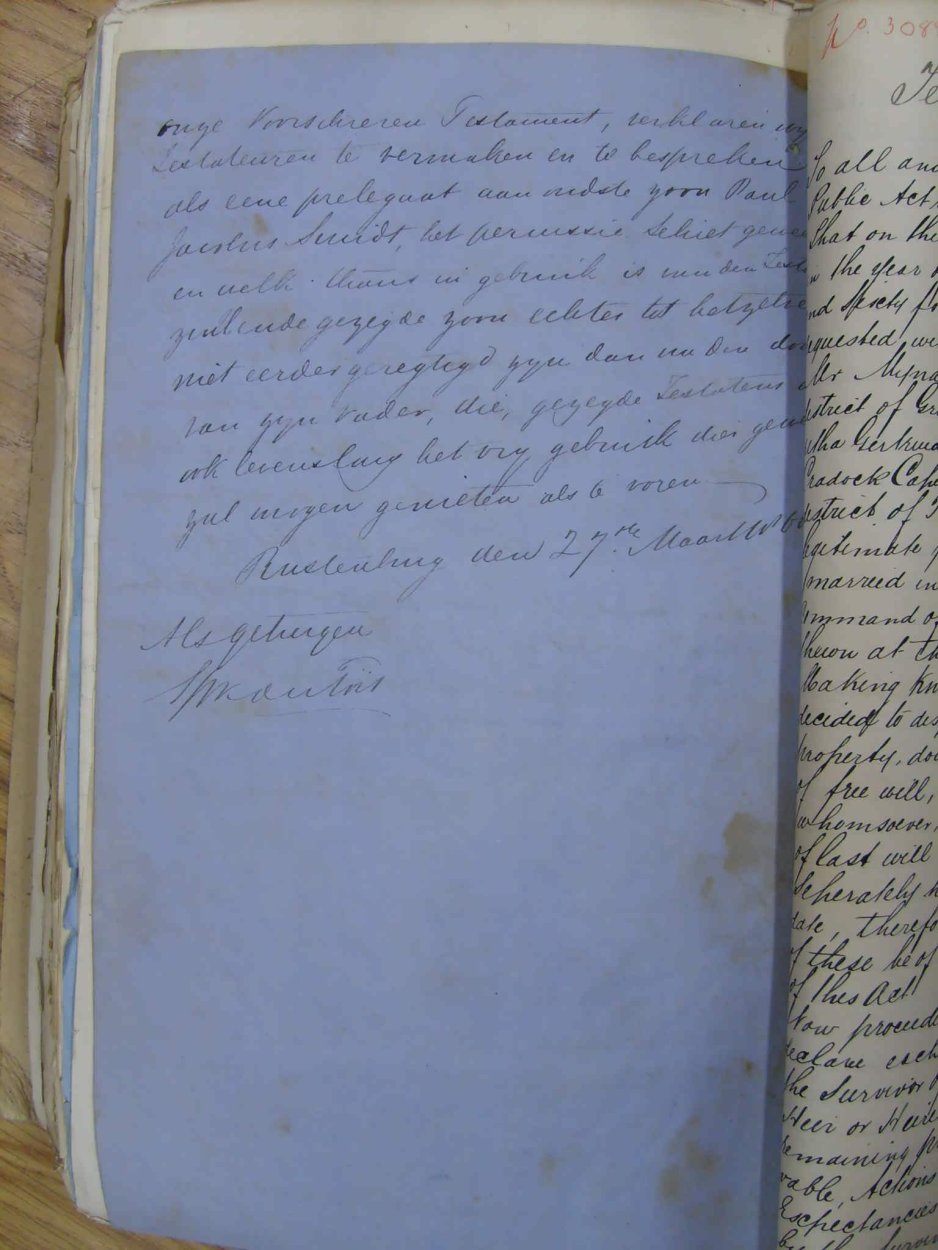 onze Voorschreven Testament, verklaren wy
Testateuren te vermaken en te bespreken
als eene prelegaat aan oudste zoon Paul
Jacobus Smidt, het percussie Schiet gewe
en welk thans in gebruik is van den Test
zullende gezegde zoon echter tot hetzelve
niet eerder geregtigd zyn dan na den do
van zyn Vader, die, gezegde Testateur
ook levenslang het vry gebruik dier gewe
zal mogen genieten als te voren
Rustenburg den 27ste Maart
Als getuigen
du Toit
No. 308
Te
To all and
Public Act,
That on the
in the year o
nd Sixty fo
equested wi
Mr Myna
istrict of Gr
tha Gertrud
Cradock Cape
istrict of
legitimate
married in
ommand o
thereon at th
Making kn
decided to dis
property, do
of free will,
whomsoever,
of last will
Seperately
date, therefo
of these be of
of this Act
Now proceed
declare each
the Survivor o
Heir or Heire
emaining
vable, Actions
Expectancies